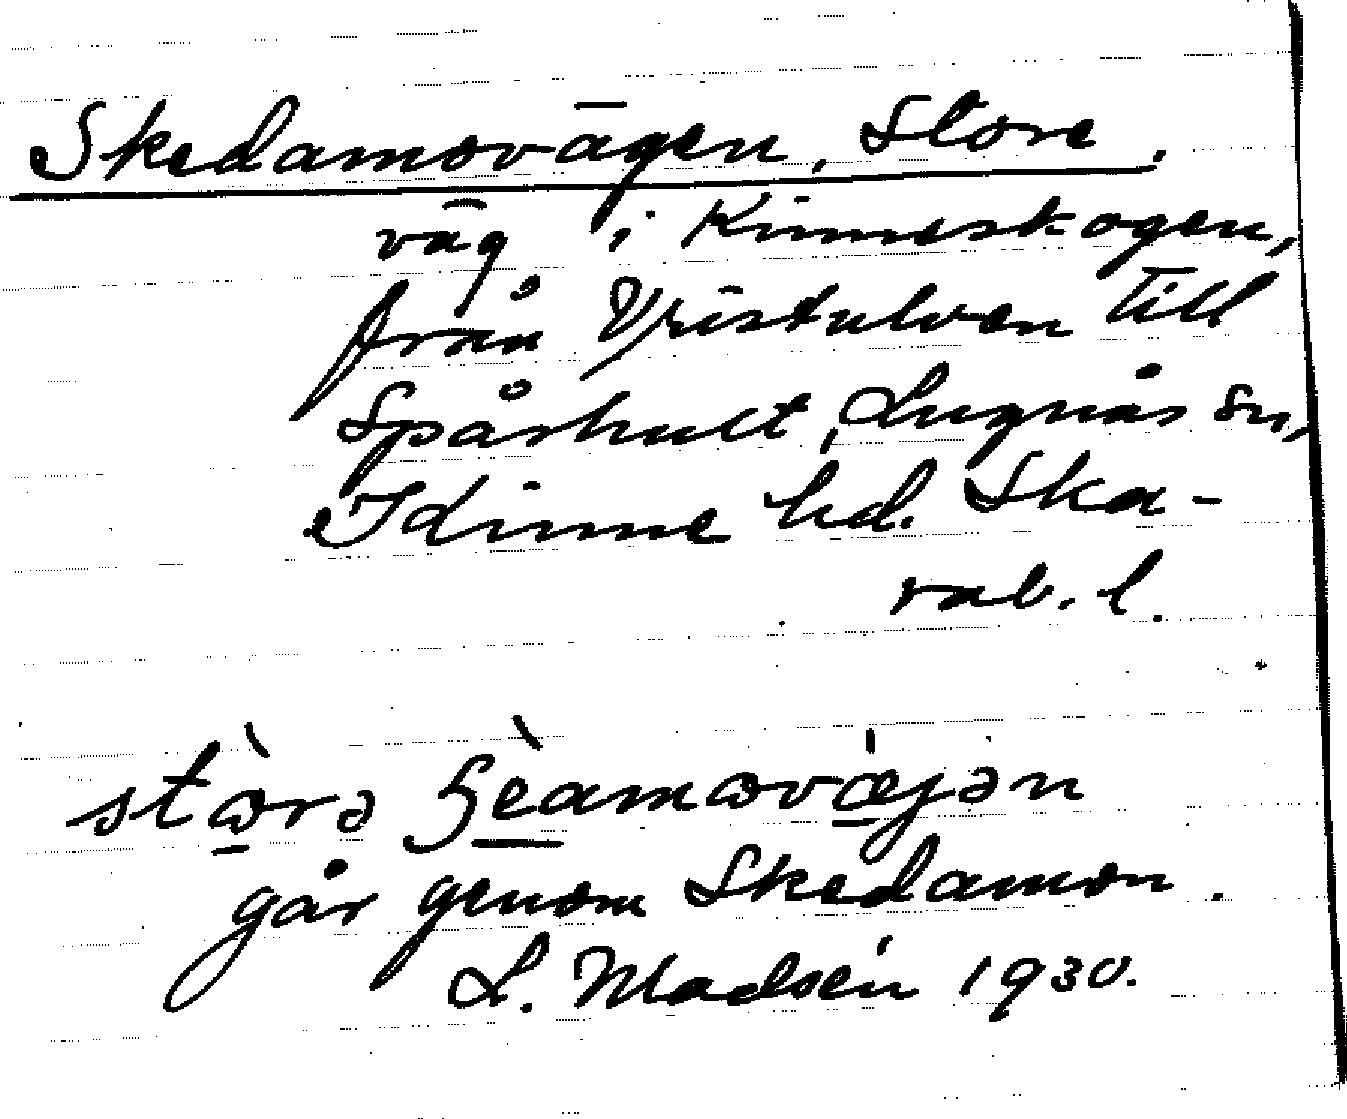 Skedamovägen, Store.
väg i Kinneskogen,
från Vristulven till
Spårhult, Lugnås sn,
Kinne hd. Ska-
rab. l.
går genom Skedamon.
L. Madsén 1930.